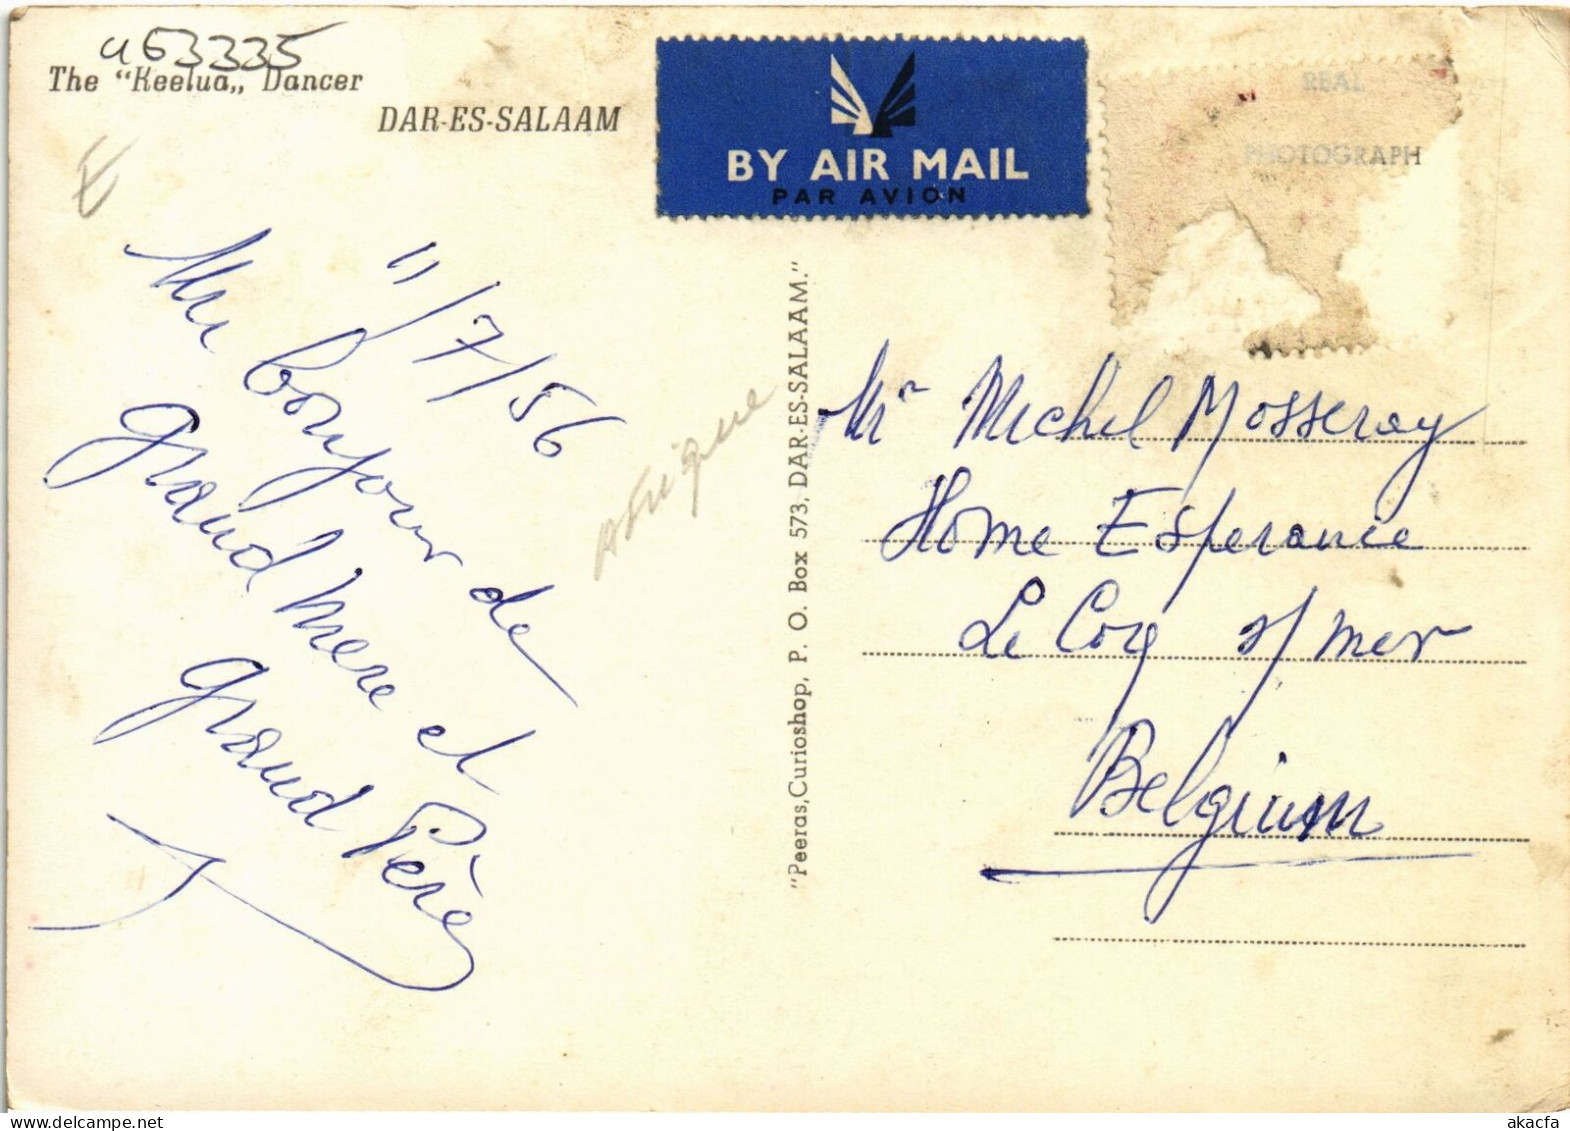 a63335
The "Keelua„ Dancer
DAR-ES-SALAAM
E
BY AIR MAIL
PAR AVION
REAL
PHOTOGRAPH
11/7/56
Un bonjour de
Grand Mere et
Grand Père
Afrique
"Peeras, Curioshop, P. O. Box 573, DAR-ES-SALAAM."
Mr Michel Mosseray
Home Esperance
Le Coq s/ mer
Belgium
akacfa